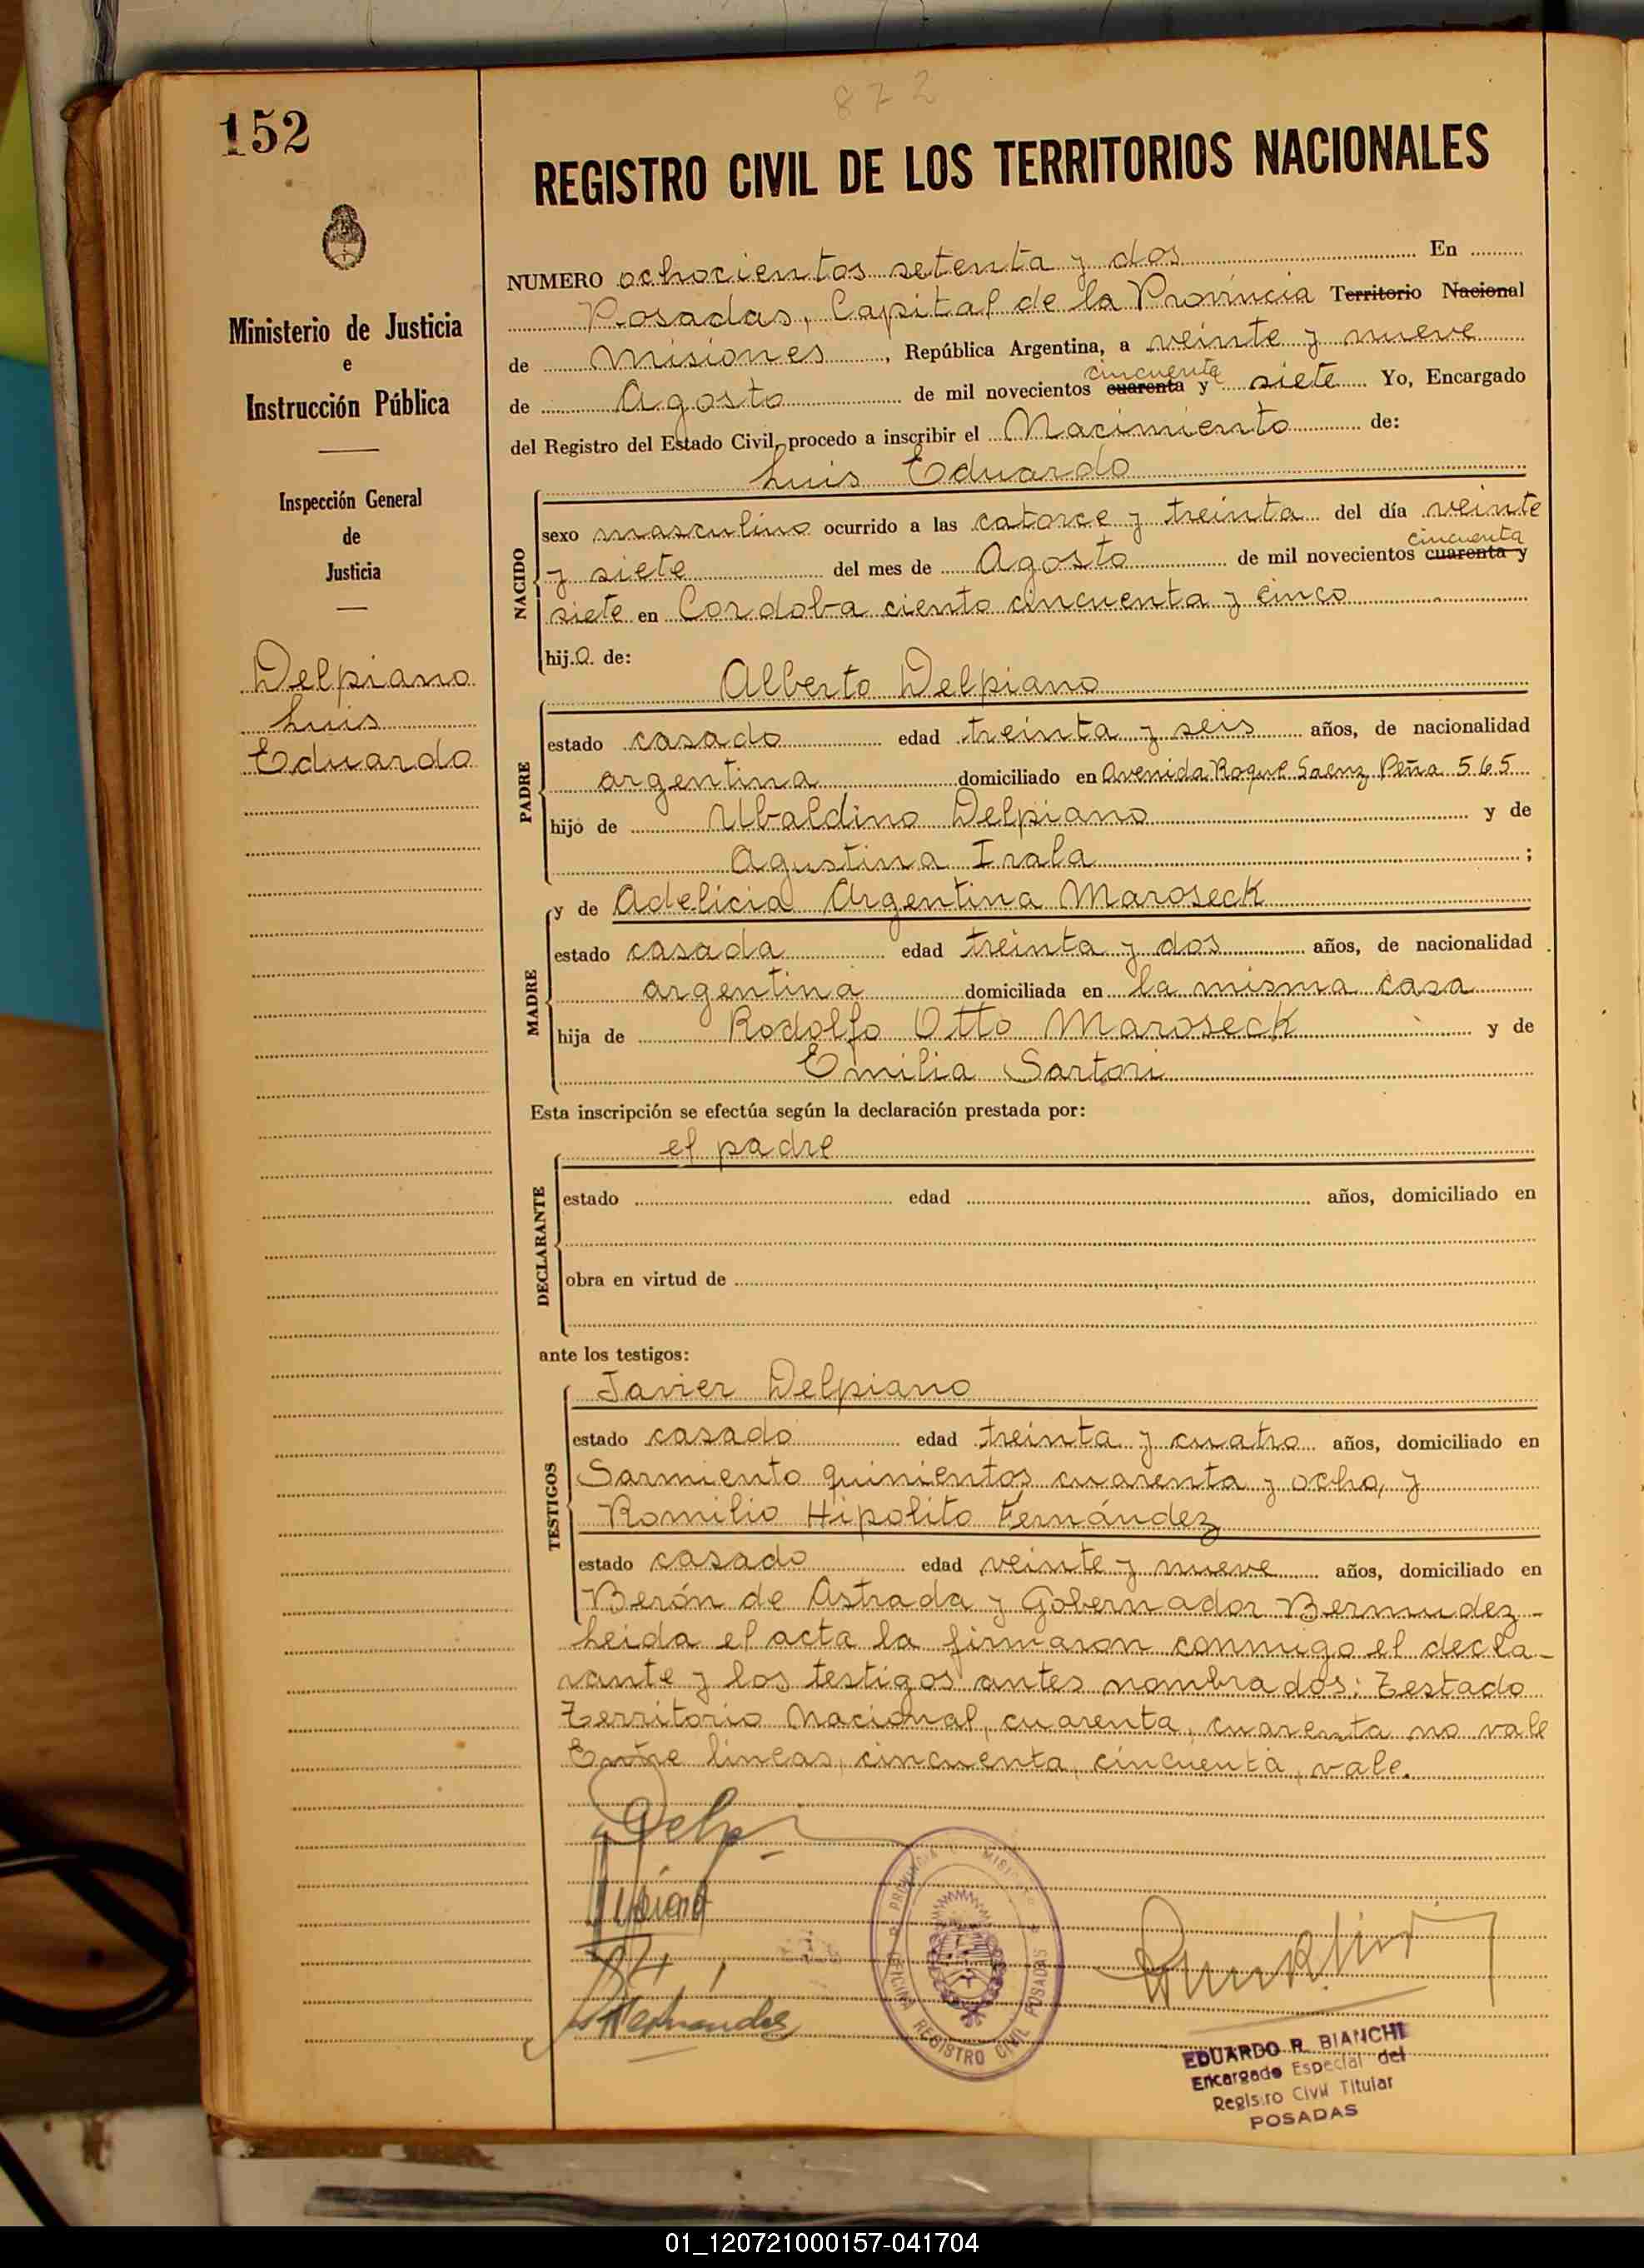 872
152
REGISTRO CIVIL DE LOS TERRITORIOS NACIONALES
Ministerio de Justicia
e
Instrucción Pública
Inspección General
de
Justicia
Delpiano
Luis
Eduardo
NUMERO ochocientos setenta y dos En
Posadas, Capital de la Provincia Territorio Nacional
de Misiones, República Argentina, a veinte y nueve
cincuenta
de Agosto de mil novecientos cuarenta y siete Yo, Encargado
del Registro del Estado Civil, procedo a inscribir el Nacimiento de:
Luis Eduardo
NACIDO
sexo masculino ocurrido a las catorce y treinta del día veinte
cincuenta
y siete del mes de Agosto de mil novecientos cuarenta y
siete en Cordoba ciento cincuenta y cinco
hijo de:
Alberto Delpiano
PADRE
estado casado edad treinta y seis años, de nacionalidad
argentina domiciliado en Avenida Roque Saenz Peña 565
hijo de Ubaldino Delpiano y de
Agustina Irala ;
y de Adelicia Argentina Maroseck
MADRE
estado casada edad treinta y dos años, de nacionalidad
argentina domiciliada en la misma casa
hija de Rodolfo Otto Maroseck y de
Emilia Sartori
Esta inscripción se efectúa según la declaración prestada por:
el padre
DECLARANTE
estado edad años, domiciliado en
obra en virtud de
ante los testigos:
Javier Delpiano
TESTIGOS
estado casado edad treinta y cuatro años, domiciliado en
Sarmiento quinientos cuarenta y ocho, y
Romilio Hipolito Fernández
estado casado edad veinte y nueve años, domiciliado en
Berón de Astrada y Gobernador Bermudez -
Leida el acta la firmaron conmigo el decla-
rante y los testigos antes nombrados: Testado
Territorio Nacional, cuarenta, cuarenta no vale
Entre lineas, cincuenta, cincuenta, vale.
PROVINCIA MISIONES
OFICINA REGISTRO CIVIL POSADAS
EDUARDO R. BIANCHI
Encargado Especial del
Registro Civil Titular
POSADAS
01_120721000157-041704